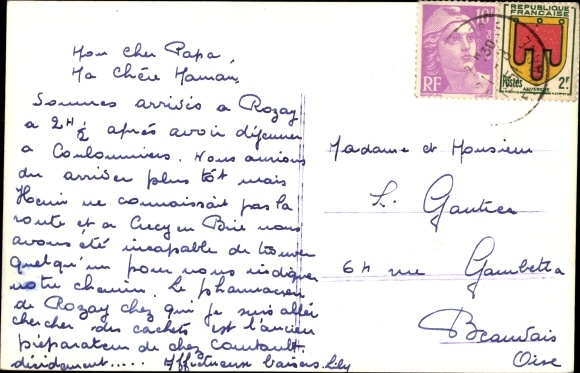 Mon cher Papa,
Ma chère Maman,
Sommes arrivés à Rozay
à 2H ½ après avoir déjeuner
à Coulommiers. Nous aurions
du arriver plus tôt mais
Henri ne connaissait pas la
route et à Crecy en Brie nous
avons été incapable de trouver
quelqu'un pour nous indiquer
notre chemin. Le pharmacien
de Rozay chez qui je suis allée
chercher des cachets est l'ancien
préparateur de chez
décidément..... Affectueux baisers. Lily
Madame et Monsieur
L. Gautier
64 rue Gambetta
Beauvais
Oise
10F
RF
REPUBLIQUE
FRANÇAISE
Postes
2F
AUVERGNE